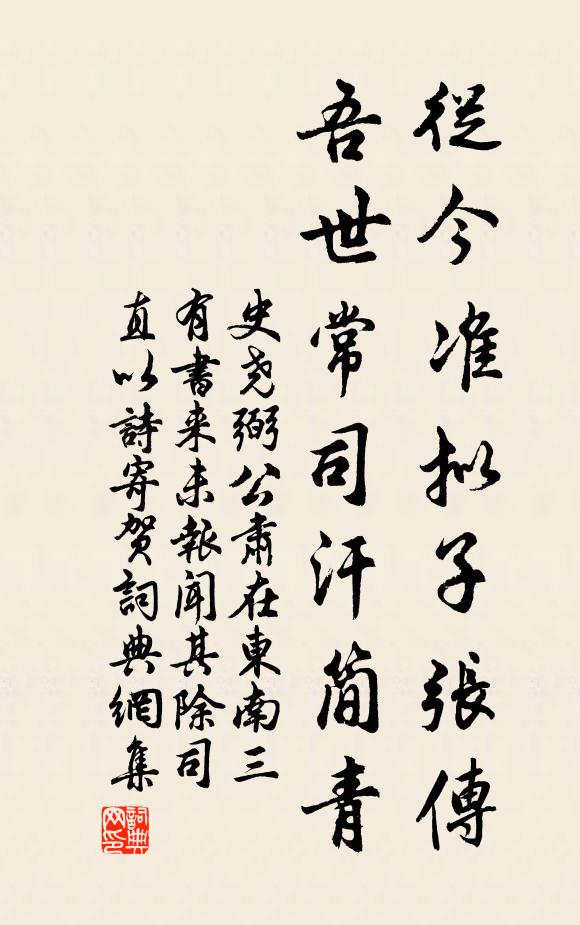 從今准拟子張傳
吾世常司汗简青
史尧弼公肅在東南三
有書来未報聞其除司
直以詩寄贺詞典網集
詞典网印